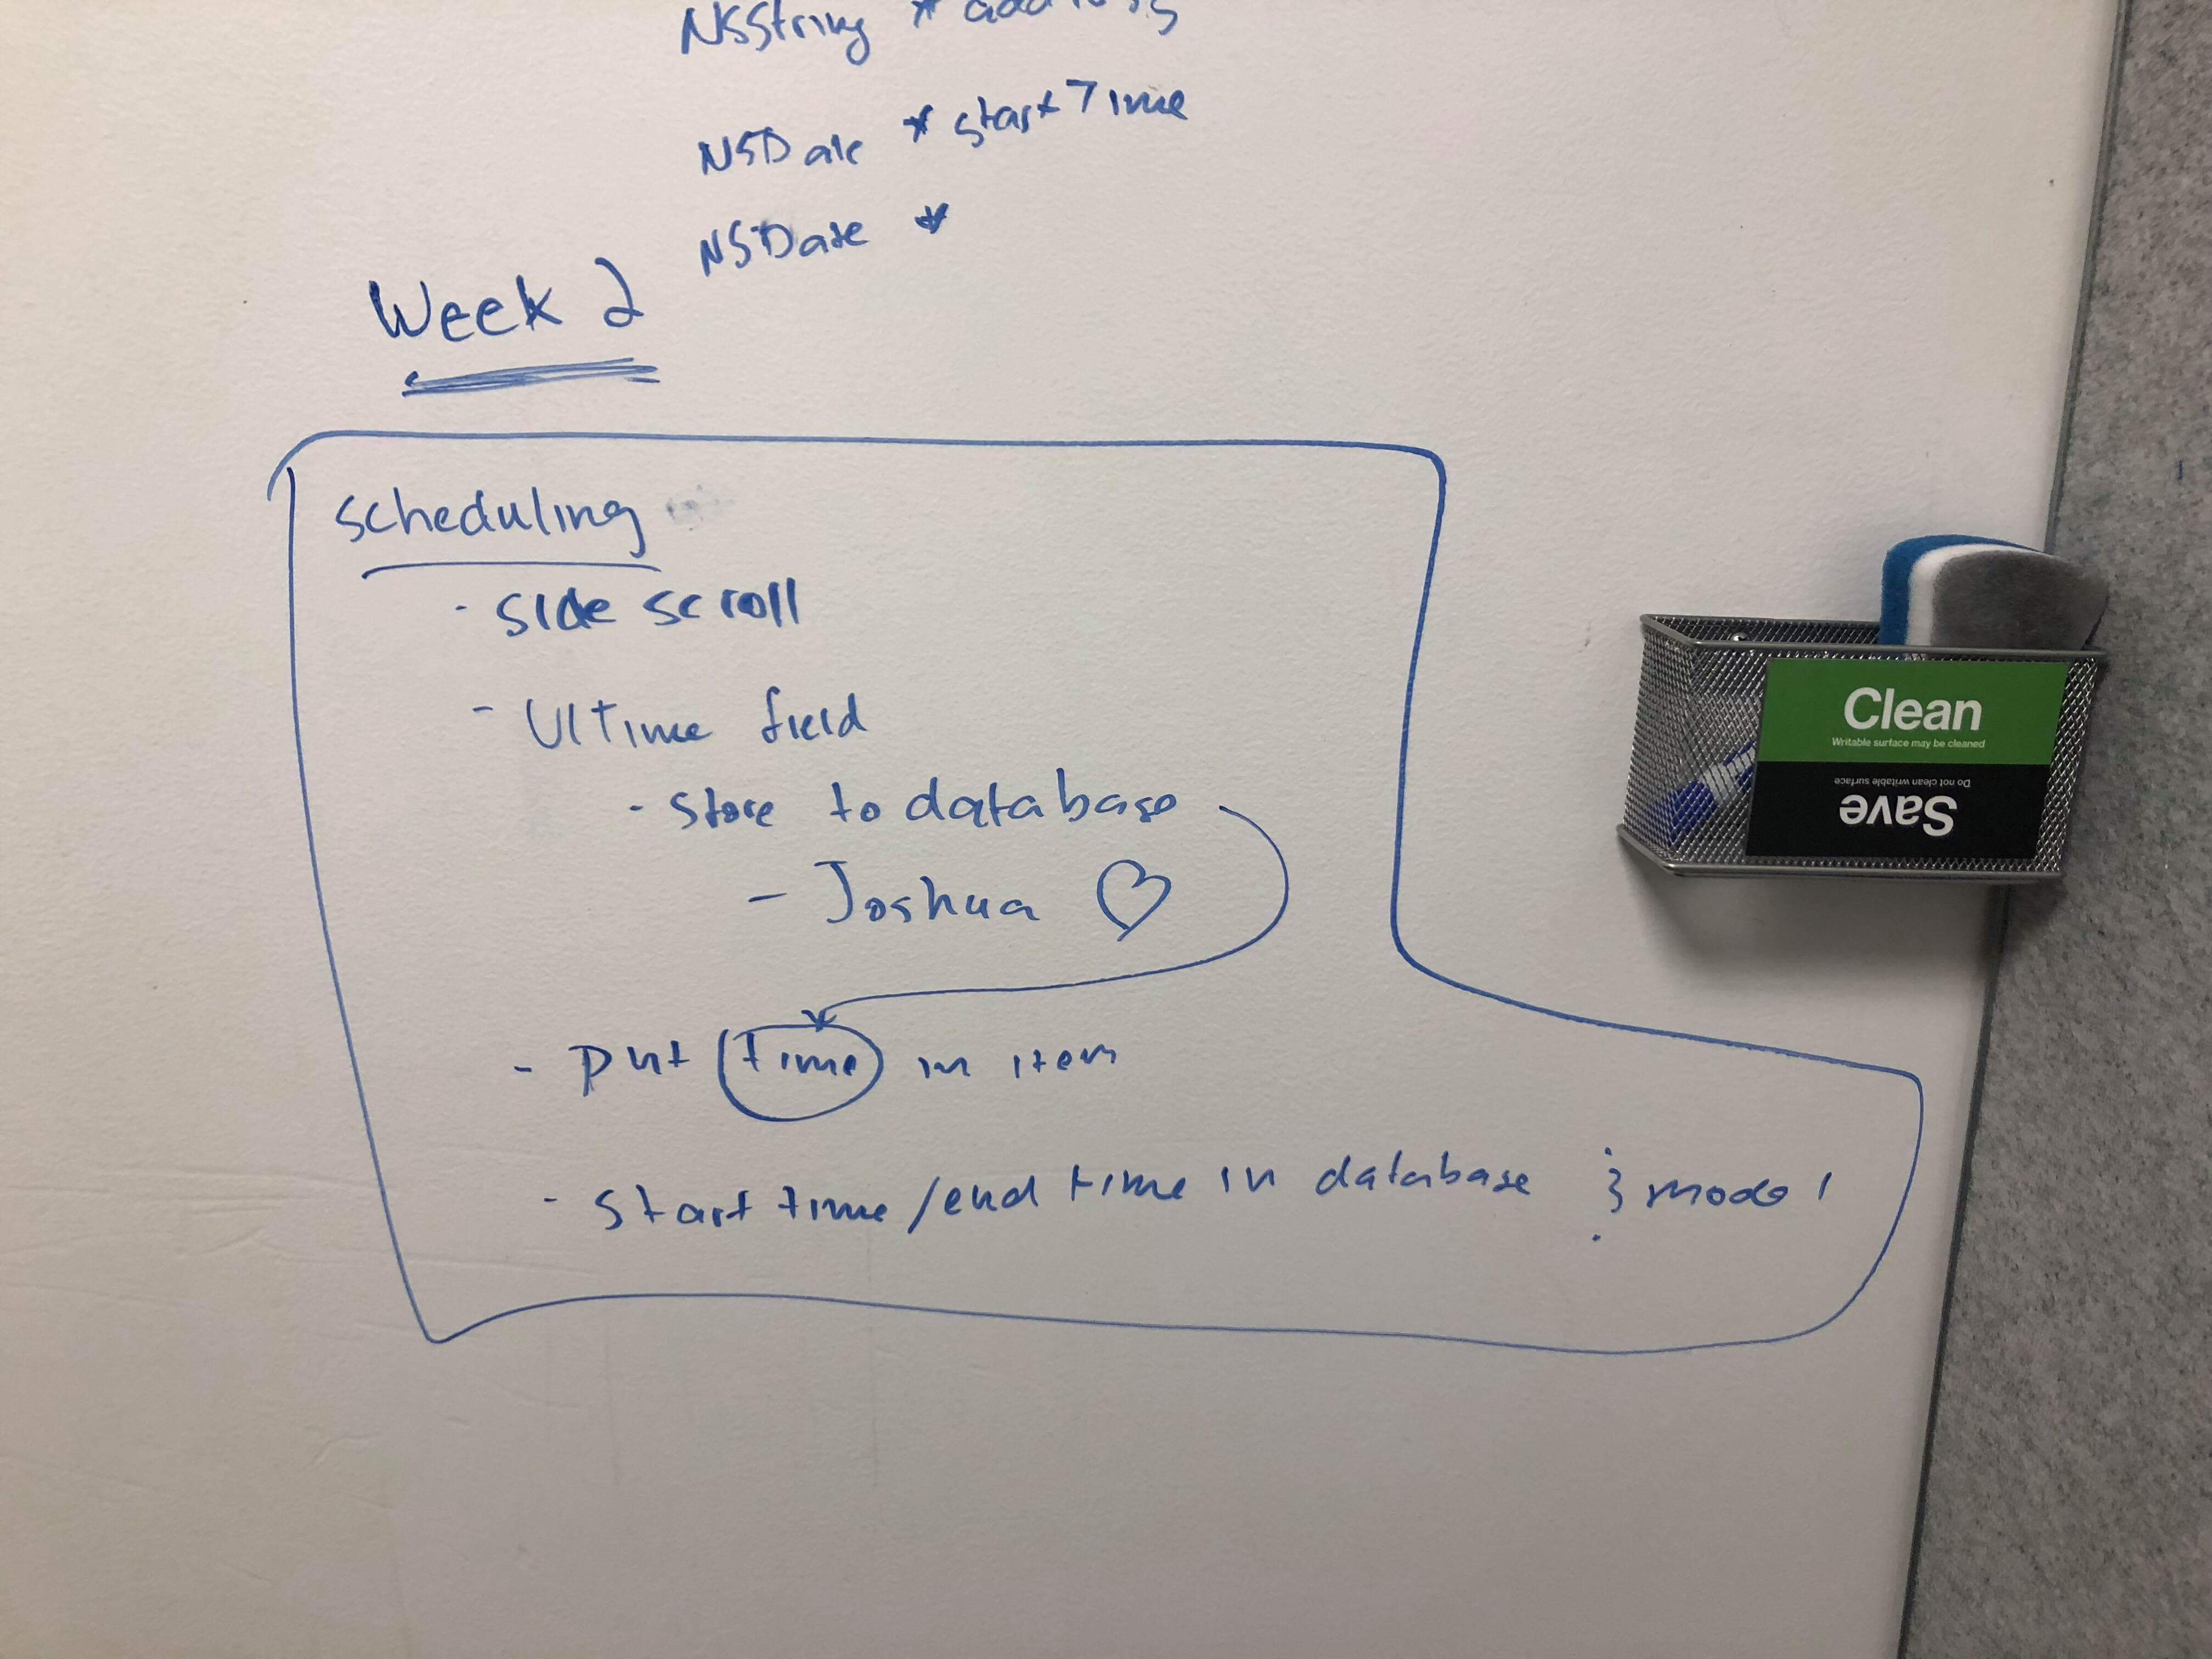 NSString *address
NSDate * startTime
NSDate *
Week 2
scheduling
- side scroll
- UITime field
- store to database
- Joshua ♡
- put time in item
- start time/end time in database & model
Clean
Writable surface may be cleaned
Do not clean writable surface
Save